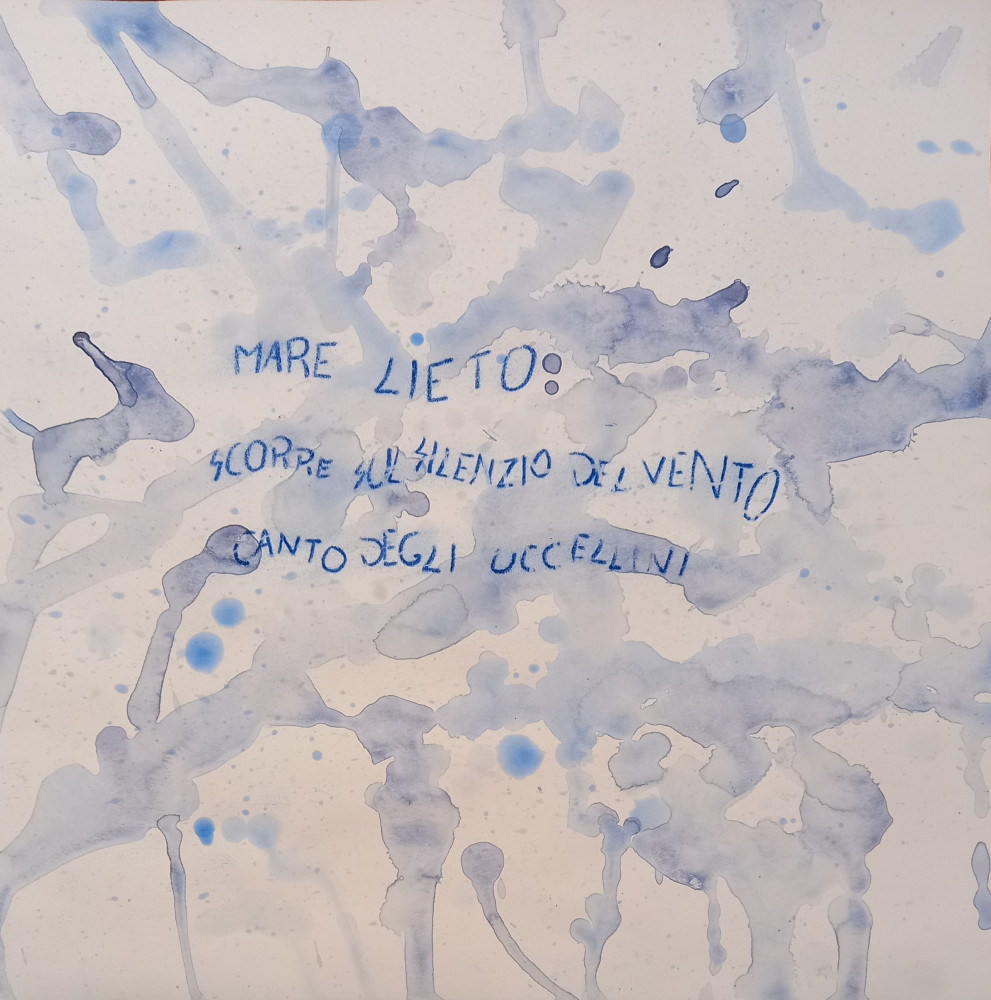 MARE LIETO:
SCORRE SUL SILENZIO DEL VENTO
CANTO DEGLI UCCELLINI